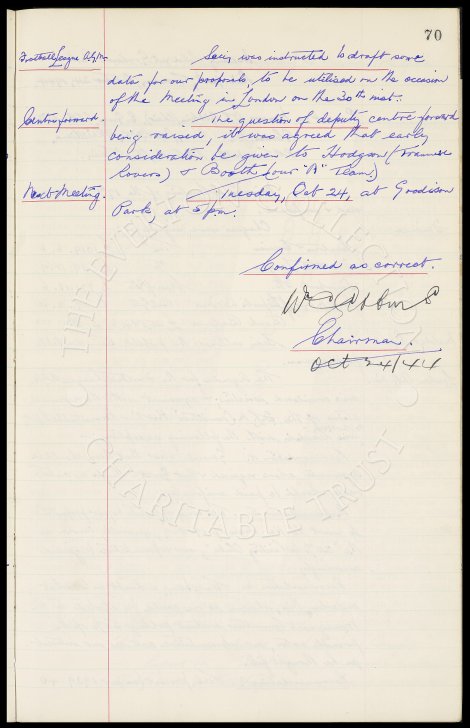 70
Football League Adj. Mtg.
Secy. was instructed to draft some
data for our proposals, to be utilised on the occasion
of the Meeting in London on the 30th inst.
Centre forward.
The question of deputy centre-forward
being raised, it was agreed that early
consideration be given to Hodgson (Tranmere
Rovers) & Booth (our "A" Team)
Next Meeting.
Tuesday, Oct 24, at Goodison
Park, at 5 pm.
Confirmed as correct.
Chairman.
Oct 24/44
THE EVERTON COLLECTION
CHARITABLE TRUST